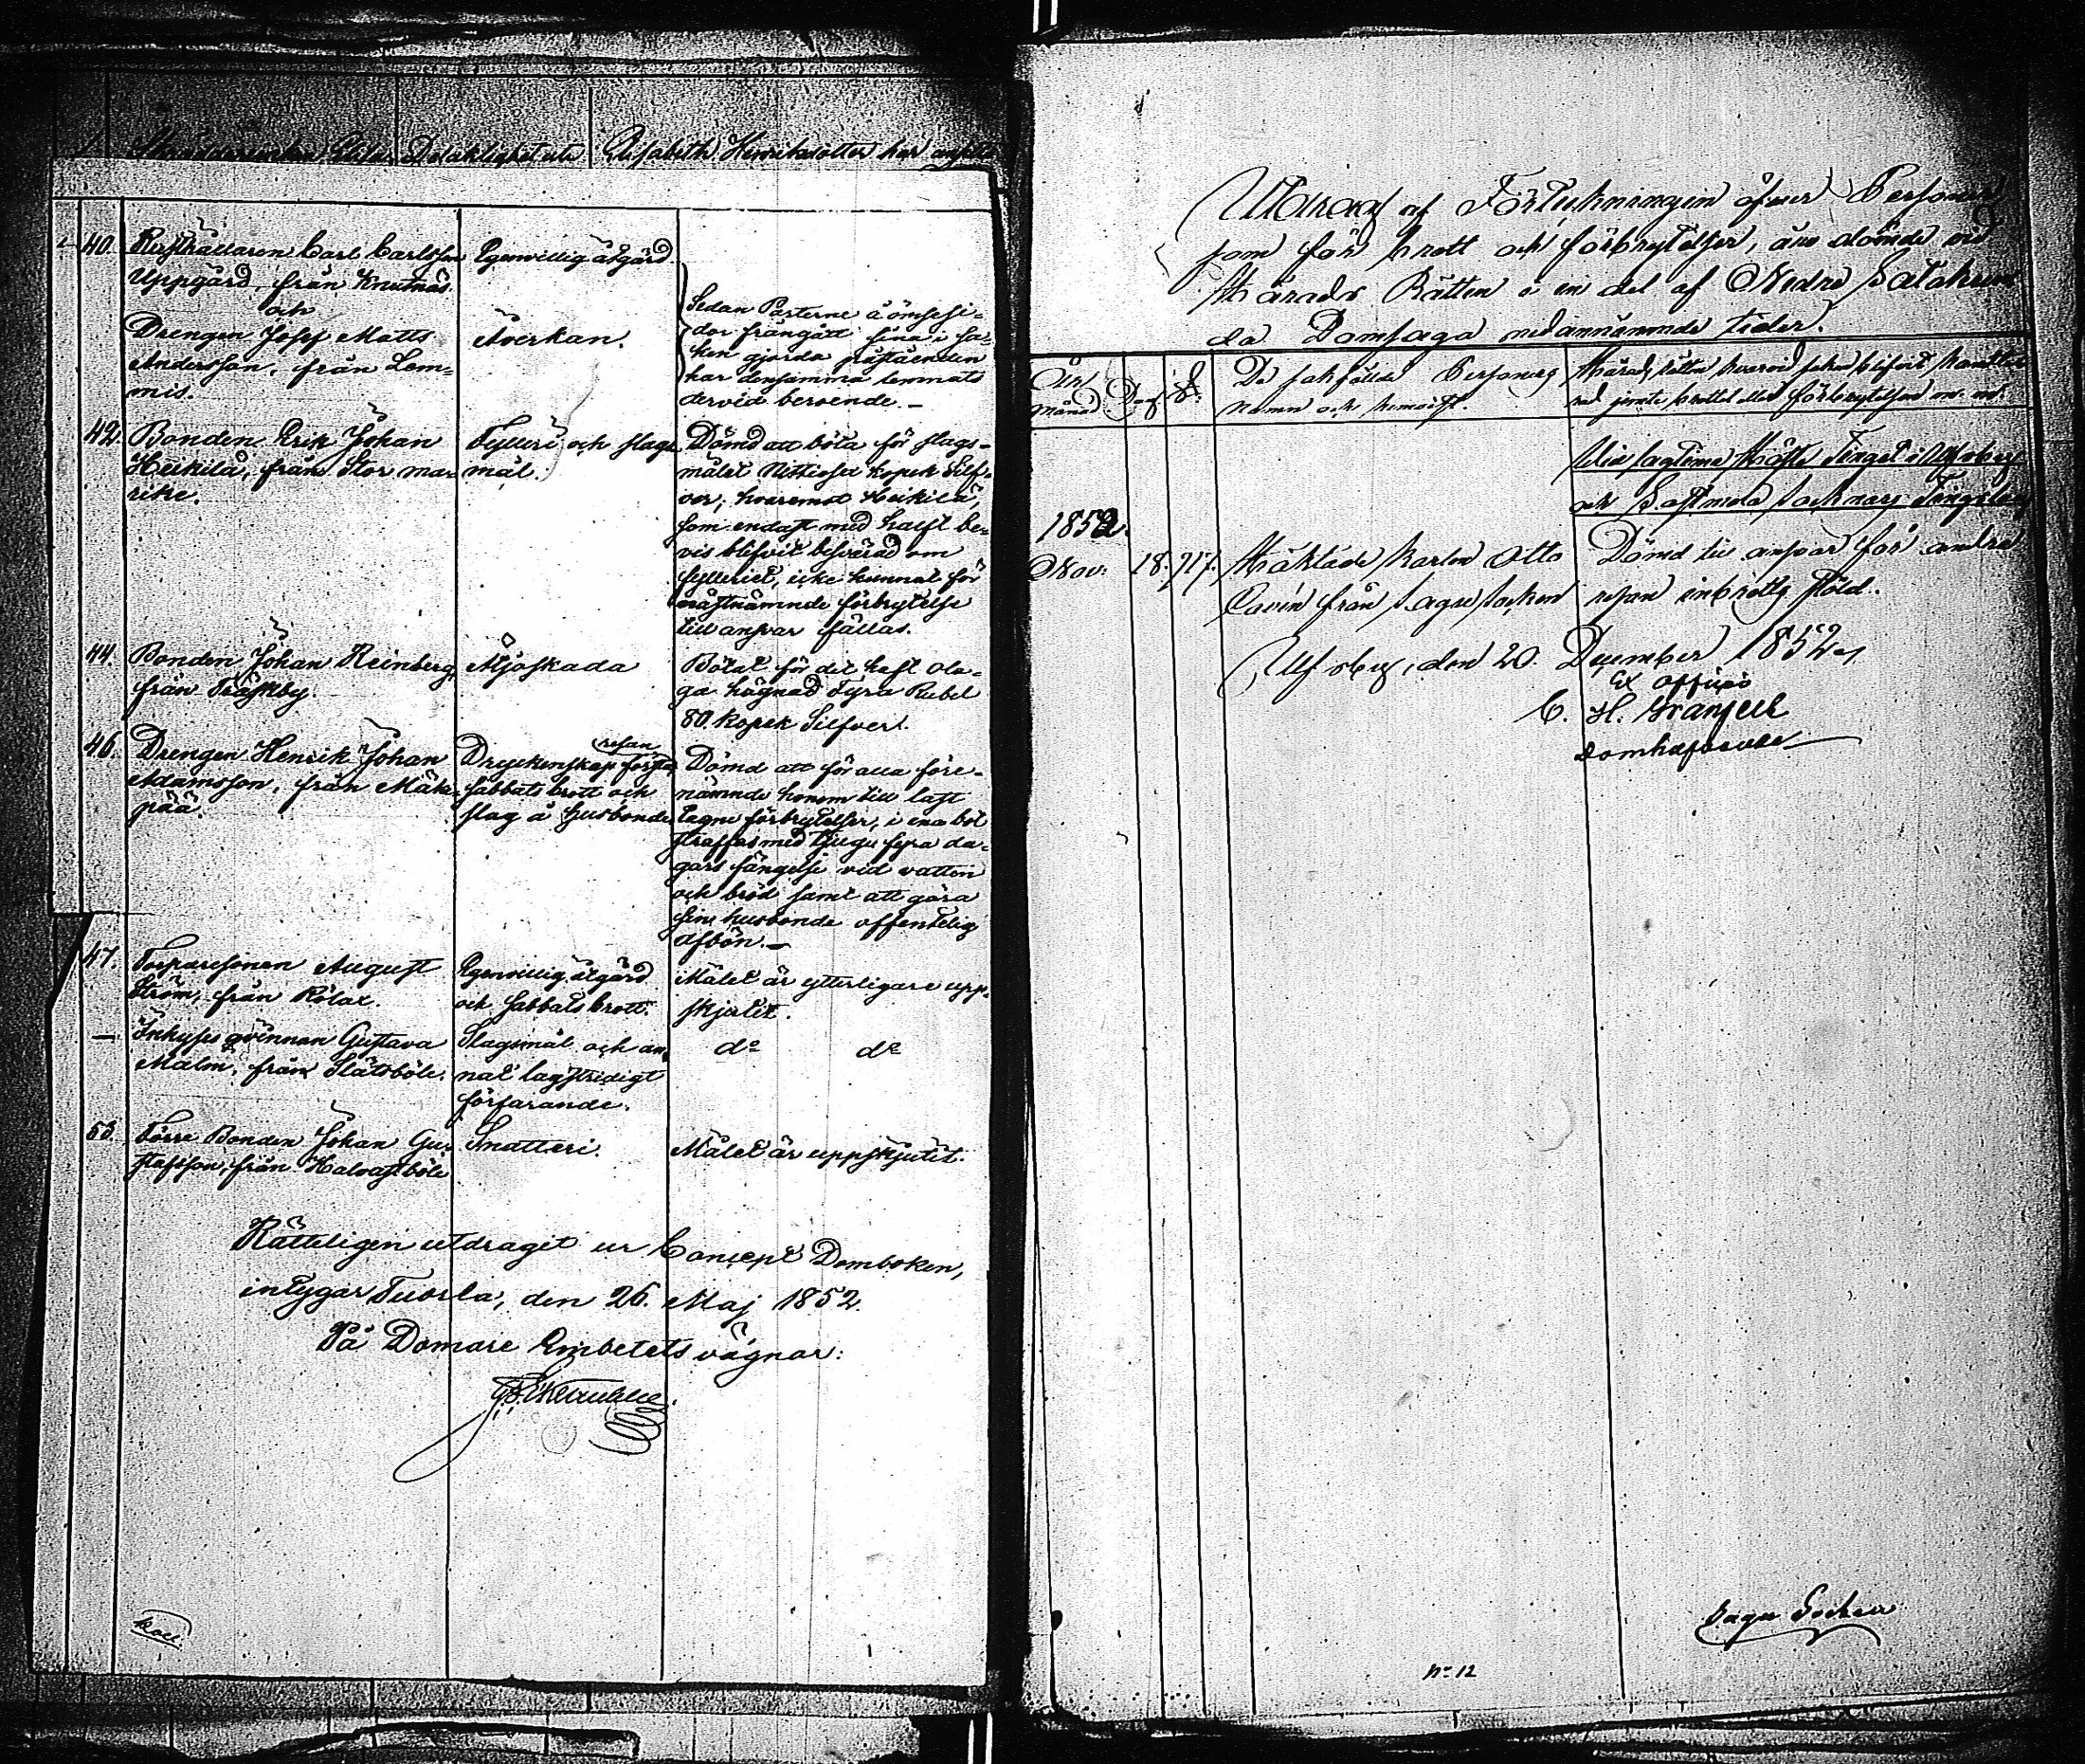 Delaktighet uti
Elisabeth Henriksdotter har
40.
Rusthållaren Carl Carlsson
Egenvillig åtgärd.
Uppgård, från Knutnäs.
och
Drengen Josef Matts
Åverkan.
Andersson, från Lem-
mis.
Sedan Parterne å ömsesi-
dor frångått sina i sa-
ken gjorda påståenden
har densamma lemnats
dervid beroende.—
42.
Bonden Erik Johan
Heikilä, från Stor ma-
rike.
Fylleri och slags
mål.
Dömd att böta för slags-
målet Nittiosex kopek Silf-
ver; hvaremot Heikilä,
som endast med halft be-
vis blifvit besvärad om
fylleriet, icke kunnat för
nästnämnde förbrytelse
till ansvar fällas.
44.
Bonden Johan Reinberg,
från Träskby.
Åjoskada
Bötat för det haft ola-
ga hägnad Fyra Rubel
80. kopek Silfver.
46.
Drengen Henrik Johan
Adamsson, från Mäke-
pää.
resan
Dryckenskap första,
sabbats brott och
slag å husbonde
Dömd att för alla före-
nämnde honom till last
tagne förbrytelser, i ena bot
straffas med tjugufyra da-
gars fängelse vid vatten
och bröd samt att göra
sin husbonde offentelig
afbön.—
47.
Torparesonen August
Ström, från Rölax.
Egenvillig åtgärd
och sabbats brott.
Målet är ytterligare upp-
skjutit.
—
Inhyses qvinnan Gustava
Malm, från Slätsböle.
Slagsmål och an-
nat lagstridigt
förfarande.
do do
53.
Förre Bonden Johan Gu-
stafsson, från Halvastböle
Snatteri.
Målet är uppskjutit.
Rätteligen utdraget ur Concept Domboken,
intygar Tuorla, den 26. Maj 1852.
På Domare Embetets vägnar:
Koll.
Utdrag af Förteckningen öfver Personer
som för brott och förbrytelser, äro dömde vid
Härads Rätten i en del af Nedre Satakun
da Domsaga nedannämnde tider.
År
månad
Dag
§.
De sakfällde Personers
namn och hemvist.
Härads Rätten hvarvid saken blifvit handlad
med jemte brottet eller förbrytelsen m. m.
Vid lagtima Höste Tinget i Ulfsby
och Sastmola Socknars Tingslag
1852.
Nov: 18. 217.
Häktade Karlen Otto
Lavén från Sagu Socken
Dömd till ansvar för andra
resan inbrotts stöld.
Ulfsby, den 20. December 1852.
Ex officio
C. H. Franzell
Domhafvande
Sagu Socken
No 12